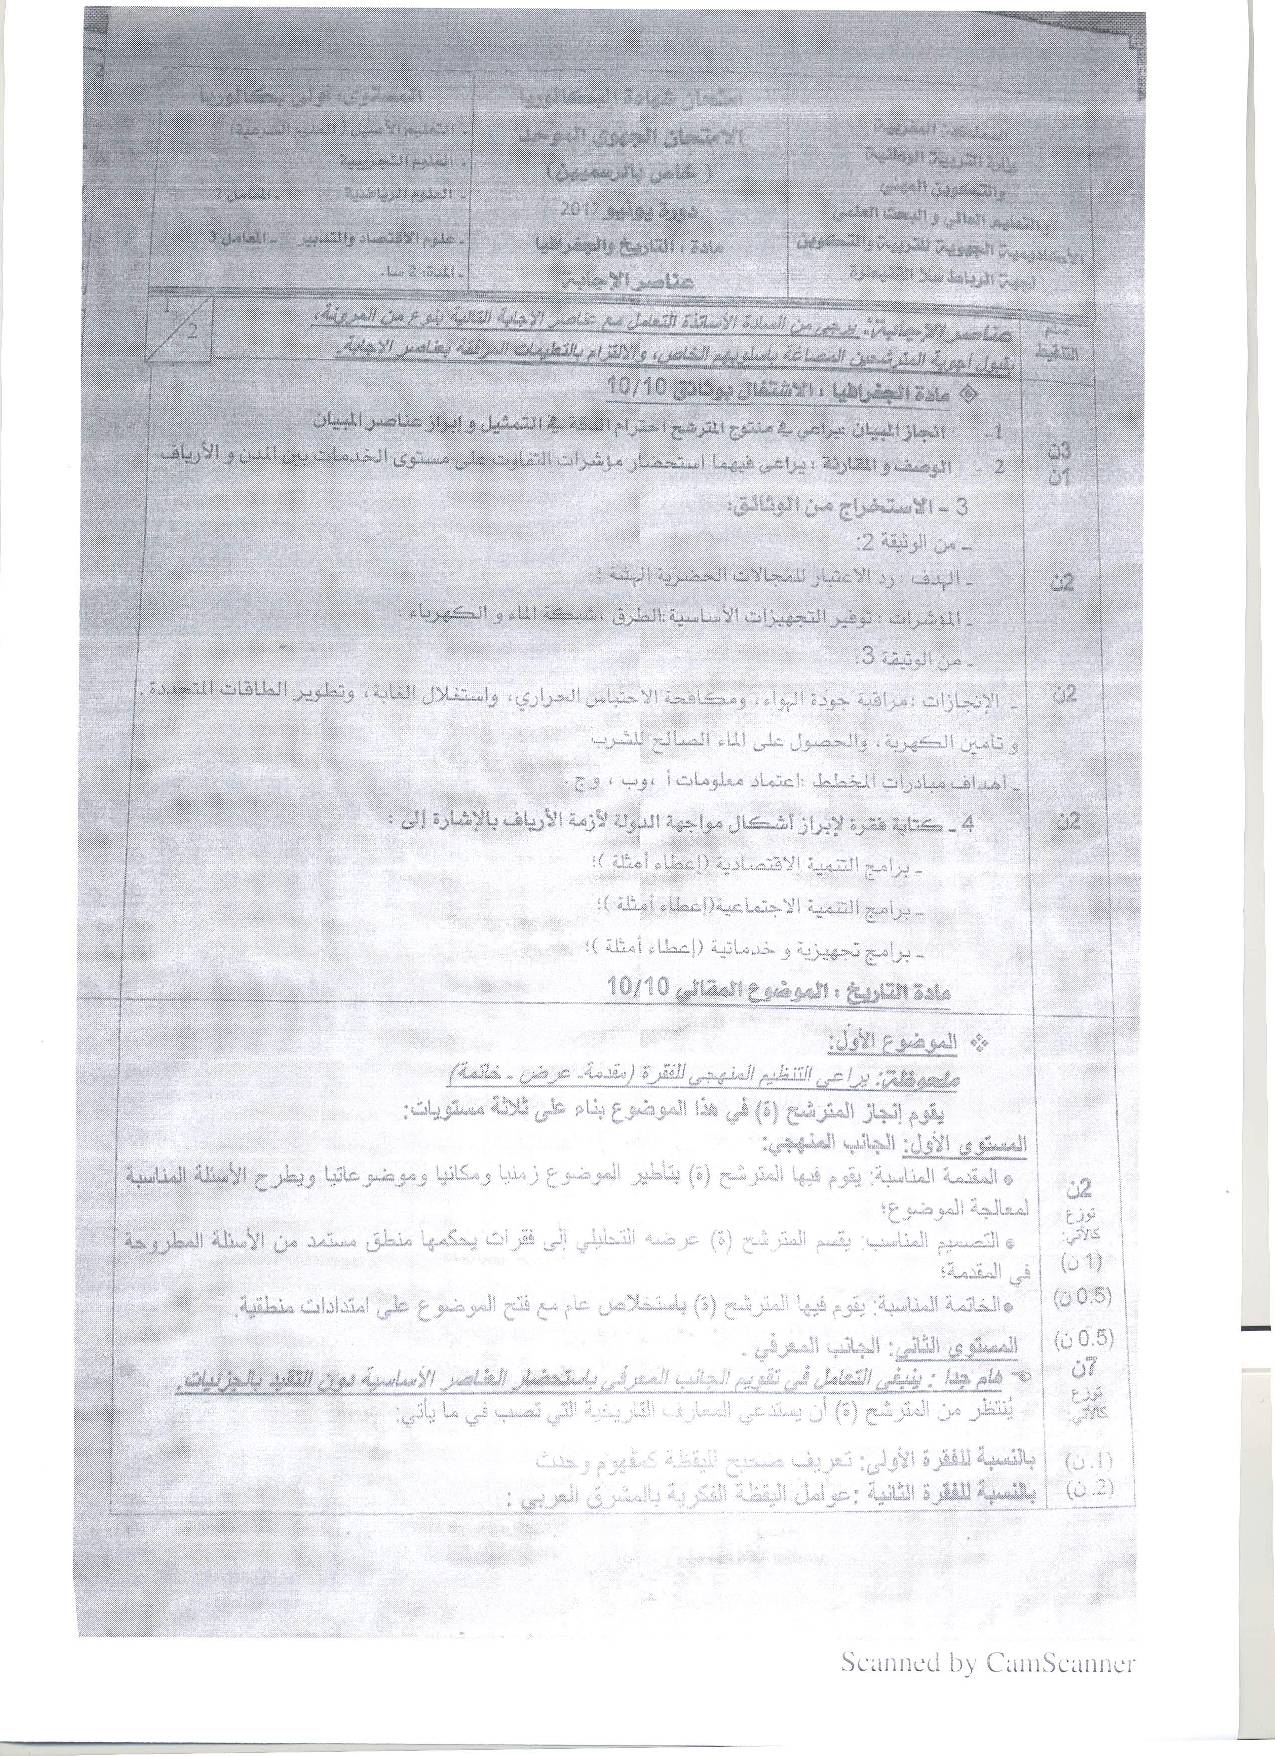 المملكة المغربية
وزارة التربية الوطنية
والتكوين المهني
والتعليم العالي و البحث العلمي
الأكاديمية الجهوية للتربية والتكوين
لجهة الرباط سلا القنيطرة
امتحان شهادة البكالوريا
الامتحان الجهوي الموحد
( خاص بالرسميين)
دورة يونيو 2017
مادة : التاريخ والجغرافيا
عناصر الإجابة
المستوى: أولى بكالوريا
- التعليم الأصيل (العلوم الشرعية)
- العلوم التجريبية
- العلوم الرياضية - المعامل 2
- علوم الاقتصاد والتدبير - المعامل 3
- المدة: 2 سا.
سلم التنقيط
عناصر الإجابة: يرجى من السادة الأساتذة التعامل مع عناصر الإجابة التالية بنوع من المرونة،
بقبول أجوبة المترشحين المصاغة بأسلوبهم الخاص، والالتزام بالتعليمات المرفقة بعناصر الإجابة.
1/2
مادة الجغرافيا : الاشتغال بوثائق 10/10
3ن
1. انجاز المبيان يراعى في منتوج المترشح احترام الدقة في التمثيل و ابراز عناصر المبيان
1ن
2 - الوصف و المقارنة : يراعى فيهما استحضار مؤشرات التفاوت على مستوى الخدمات بين المدن و الأرياف
3 – الاستخراج من الوثائق:
ـ من الوثيقة 2:
2ن
ـ الهدف : رد الاعتبار للمجالات الحضرية الهشة ؛
ـ المؤشرات : توفير التجهيزات الأساسية:الطرق ،شبكة الماء و الكهرباء .
ـ من الوثيقة 3:
2ن
ـ الإنجازات : مراقبة جودة الهواء، ومكافحة الاحتباس الحراري، واستغلال الغابة، وتطوير الطاقات المتجددة .
و تأمين الكهربة، والحصول على الماء الصالح للشرب
ـ أهداف مبادرات المخطط :اعتماد معلومات أ ،وب ، وج .
2ن
4 ـ كتابة فقرة لإبراز أشكال مواجهة الدولة لأزمة الأرياف بالإشارة إلى :
ـ برامج التنمية الاقتصادية (إعطاء أمثلة )؛
ـ برامج التنمية الاجتماعية(إعطاء أمثلة )؛
ـ برامج تجهيزية و خدماتية (إعطاء أمثلة )؛
مادة التاريخ : الموضوع المقالي 10/10
❖ الموضوع الأول:
ملحوظة: يراعى التنظيم المنهجي للفقرة (مقدمة- عرض - خاتمة)
يقوم إنجاز المترشح (ة) في هذا الموضوع بناء على ثلاثة مستويات:
المستوى الأول: الجانب المنهجي:
2ن
توزع
كالآتي:
(1 ن)
(0.5 ن)
(0.5 ن)
• المقدمة المناسبة: يقوم فيها المترشح (ة) بتأطير الموضوع زمنيا ومكانيا وموضوعاتيا ويطرح الأسئلة المناسبة
لمعالجة الموضوع؛
• التصميم المناسب: يقسم المترشح (ة) عرضه التحليلي إلى فقرات يحكمها منطق مستمد من الأسئلة المطروحة
في المقدمة؛
•الخاتمة المناسبة: يقوم فيها المترشح (ة) باستخلاص عام مع فتح الموضوع على امتدادات منطقية.
المستوى الثاني: الجانب المعرفي .
7ن
توزع
كالآتي:
هام جدا : ينبغي التعامل في تقويم الجانب المعرفي باستحضار العناصر الأساسية دون التقيد بالجزئيات.
يُنتظر من المترشح (ة) أن يستدعي المعارف التاريخية التي تصب في ما يأتي:
(1. ن)
بالنسبة للفقرة الأولى: تعريف صحيح لليقظة كمفهوم وحدث
(2. ن)
بالنسبة للفقرة الثانية :عوامل اليقظة الفكرية بالمشرق العربي :
Scanned by CamScanner